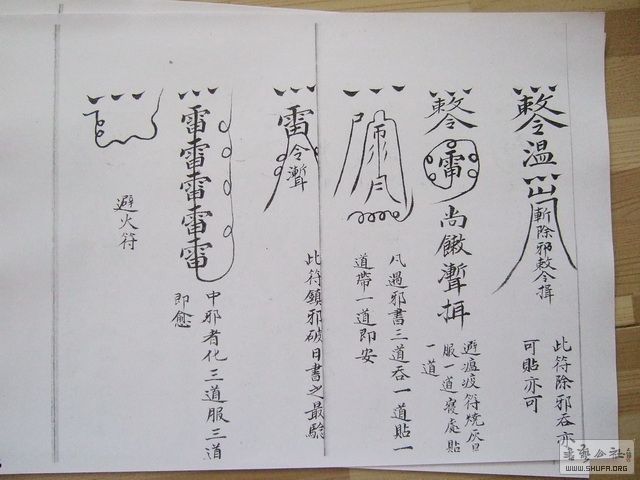 敕令溫
斬除邪敕令揖
此符除邪吞亦
可貼亦可
敕令
雷
尚
避瘟疫符燒灰日
服一道寢處貼
一道
凡過邪書三道吞一道貼一
道帶一道即安
雷
令
此符鎮邪破日書之最驗
雷雷雷雷雷
中邪者化三道服三道
即愈
避火符
WWW.SHUFA.ORG